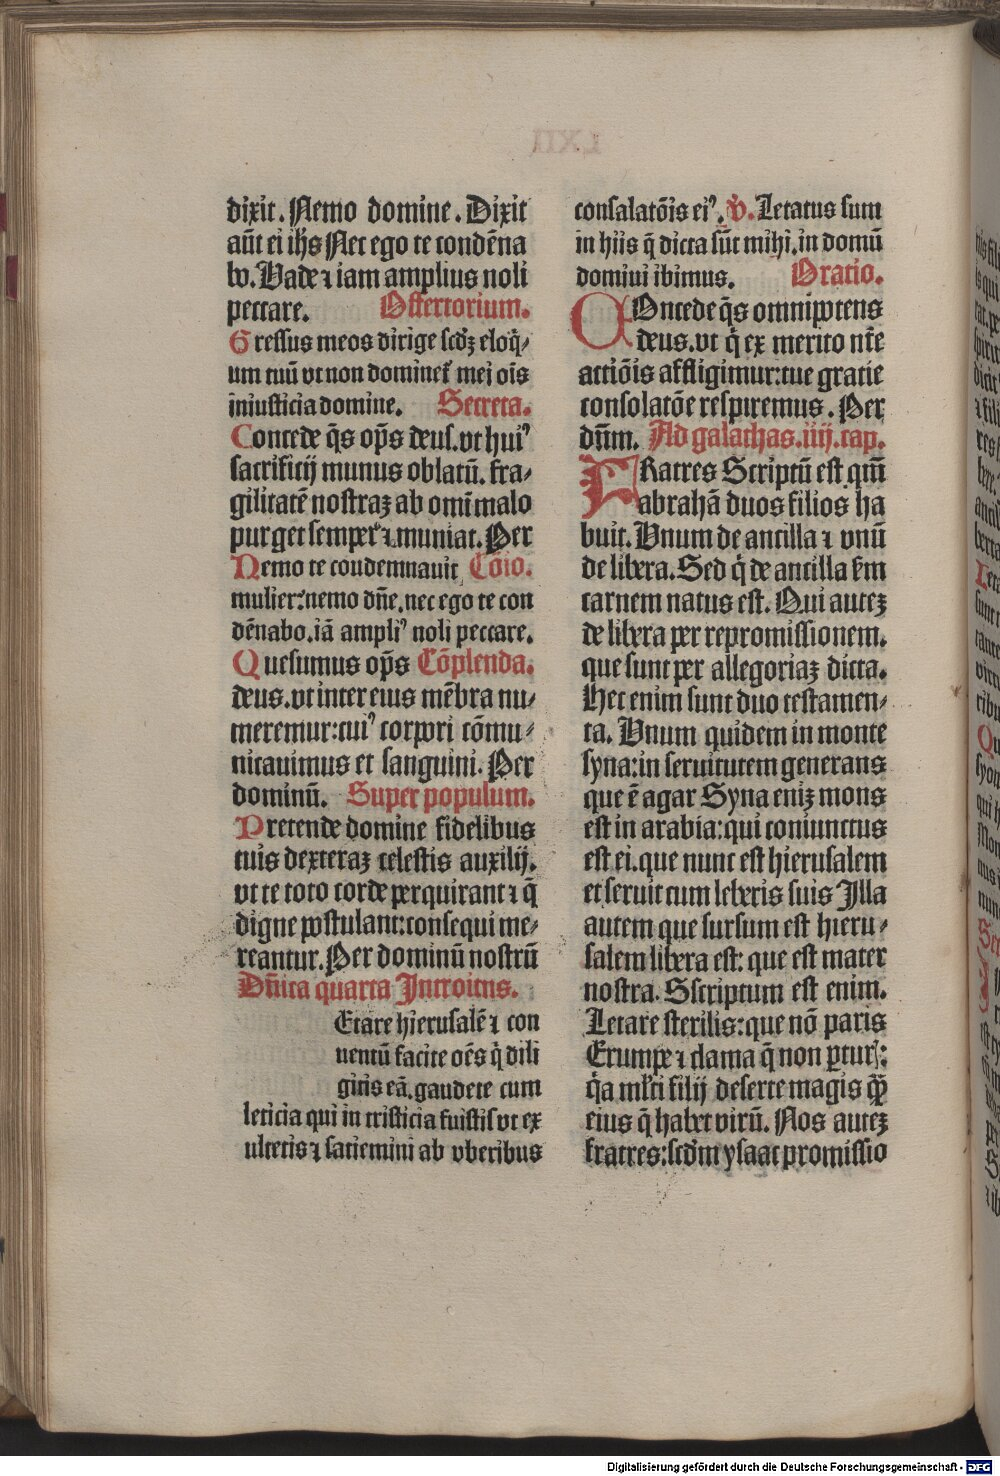 dixit. Nemo domine. Dixit
aūt ei ihs Nec ego te condēna
bo. Vade ⁊ iam amplius noli
peccare. Offertorium.
Gressus meos dirige scdꝫ eloq̄/
um tuū vt non dominet᷑ mei oīs
iniusticia domine. Secreta.
Concede q̄s op̄s deus. vt huiꝰ
sacrificij munus oblatū. fra/
gilitatē nostraꝫ ab omī malo
purget semper ⁊ muniat. Per
Nemo te condemnauit Cōio.
mulier: nemo dn̄e. nec ego te con
dēnabo. iā ampliꝰ noli peccare.
Quesumus op̄s Cōplenda.
deus. vt inter eius mēbra nu/
meremur: cuiꝰ corpori cōmu/
nicauimus et sanguini. Per
dominū. Super populum.
Pretende domine fidelibus
tuis dexteraꝫ celestis auxilij.
vt te toto corde perquirant ⁊ q̄
digne postulant: consequi me/
reantur. Per dominū nostrū
Dn̄ica quarta Introitus.
Etare hierusalē ⁊ con
uentū facite oēs q̄ dili
gitis eā. gaudete cum
leticia qui in tristicia fuistis vt ex
ultetis ⁊ satiemini ab vberibus
consalatōis eiꝰ. v̄. Letatus sum
in hiis q̄ dicta sūt mihi. in domū
domini ibimus. Oratio.
COncede q̄s omnipotens
deus. vt q̄ ex merito nr̄e
actiōis affligimur: tue gratie
consolatōe respiremus. Per
dn̄m. Ad galathas. iiij. cap.
FRatres Scriptū est qm̄
abrahā duos filios ha
buit. Vnum de ancilla ⁊ vnū
de libera. Sed q̄ de ancilla ẜm
carnem natus est. Qui auteꝫ
de libera per repromissionem.
que sunt per allegoriaꝫ dicta.
Hec enim sunt duo testamen/
ta. Vnum quidem in monte
syna: in seruitutem generans
que ē agar Syna eniꝫ mons
est in arabia: qui coniunctus
est ei. que nunc est hierusalem
et seruit cum leberis suis Illa
autem que sursum est hieru/
salem libera est: que est mater
nostra. Sscriptum est enim.
Letare sterilis: que nō paris
Erumpe ⁊ clama q̄ non ꝑturꝭ:
q̄a ml̄ti filij deserte magis qꝫ̄
eius q̄ habet virū. Nos auteꝫ
fratres: scdm ysaac promissio
Digitalisierung gefördert durch die Deutsche Forschungsgemeinschaft - DFG